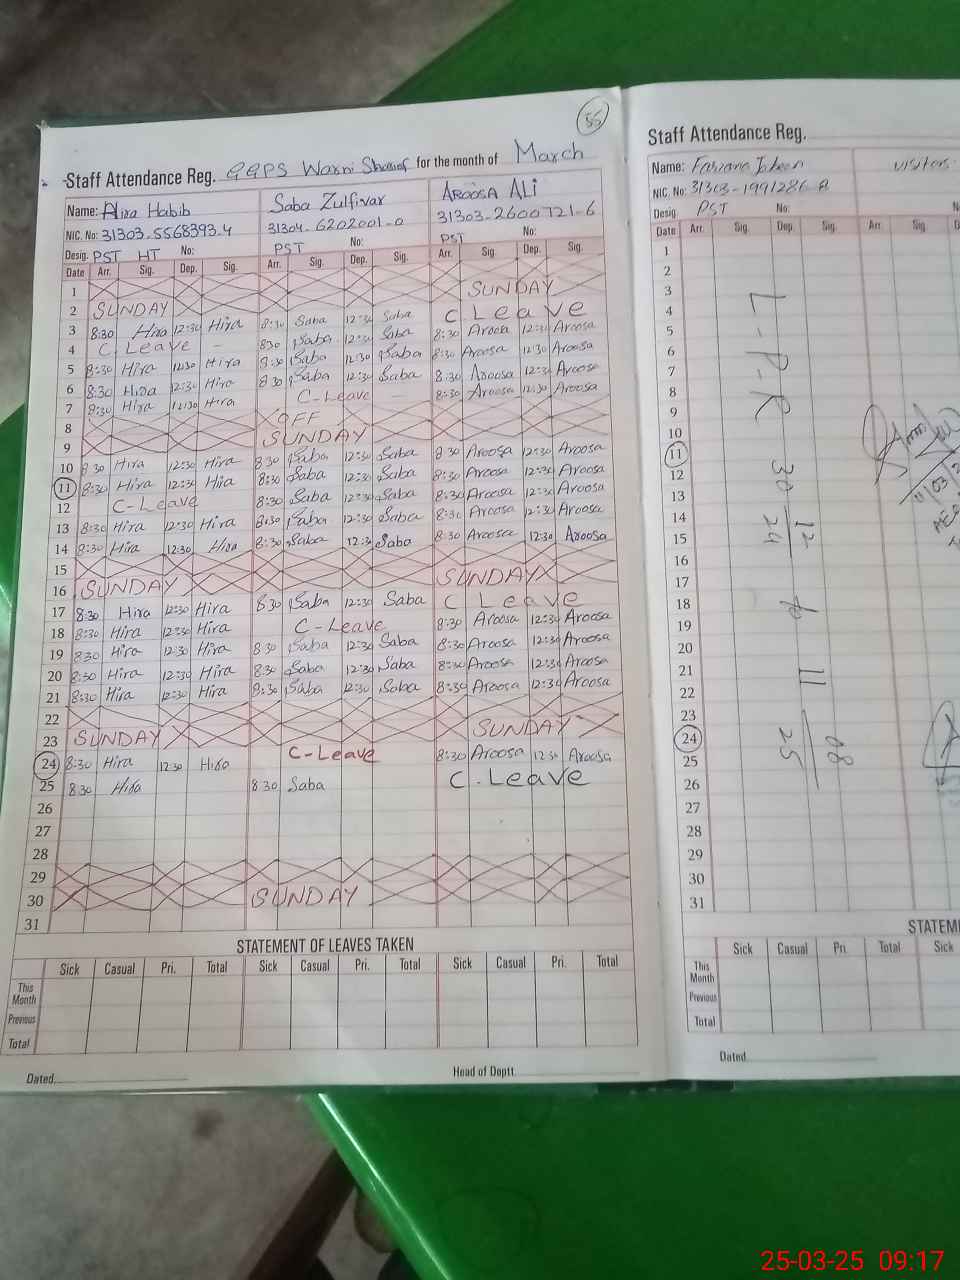 55
Staff Attendance Reg. GGPS Warni Sharif for the month of March
Name: Hira Habib Saba Zulfiqar AROOSA ALi
NIC. No: 31303-5568393-4 31304-6202001-0 31303-2600721-6
Desig. PST HT No: PST No: PST No:
Date Arr. Sig. Dep. Sig. Arr. Sig. Dep. Sig. Arr. Sig. Dep. Sig.
1 SUNDAY
2 SUNDAY C Leave
3 8:30 Hira 12:30 Hira 8:30 Saba 12:30 Saba 8:30 Aroosa 12:30 Aroosa
4 C. Leave - 830 Saba 12:30 Saba 8:30 Aroosa 12:30 Aroosa
5 8:30 Hira 12:30 Hira 8:30 Saba 12:30 Saba 8:30 Aroosa 12:30 Aroosa
6 8:30 Hira 12:30 Hira 8 30 Saba 12:30 Saba 8:30 Aroosa 12:30 Aroosa
7 8:30 Hira 12:30 Hira C-Leave
8 OFF
9 SUNDAY
10 8 30 Hira 12:30 Hira 8 30 Saba 12:30 Saba 8 30 Aroosa 12:30 Aroosa
11 8:30 Hira 12:30 Hira 8:30 Saba 12:30 Saba 8:30 Aroosa 12:30 Aroosa
12 C-Leave 8:30 Saba 12:30 Saba 8:30 Aroosa 12:30 Aroosa
13 8:30 Hira 12:30 Hira 8:30 Saba 12:30 Saba 8:30 Aroosa 12:30 Aroosa
14 8:30 Hira 12:30 Hira 8:30 Saba 12:30 Saba 8:30 Aroosa 12:30 Aroosa
15
16 SUNDAY SUNDAY
17 8:30 Hira 12:30 Hira 8 30 Saba 12:30 Saba C Leave
18 8:30 Hira 12:30 Hira C-Leave 8:30 Aroosa 12:30 Aroosa
19 830 Hira 12:30 Hira 8 30 Saba 12:30 Saba 8:30 Aroosa 12:30 Aroosa
20 8:30 Hira 12:30 Hira 8:30 Saba 12:30 Saba 8:30 Aroosa 12:30 Aroosa
21 8:30 Hira 12:30 Hira 8:30 Saba 12:30 Saba 8:30 Aroosa 12:30 Aroosa
22
23 SUNDAY SUNDAY
24 8:30 Hira 12:30 Hira C-Leave 8:30 Aroosa 12:30 Aroosa
25 8 30 Hira 8 30 Saba C. Leave
26
27
28
29
30 SUNDAY
31
STATEMENT OF LEAVES TAKEN
Sick Casual Pri. Total Sick Casual Pri. Total Sick Casual Pri. Total
This Month
Previous
Total
Dated Head of Deptt
Staff Attendance Reg.
Name: visitors
NIC. No: 31303-1991286-8
Desig PST No:
Date Arr. Sig. Dep. Sig. Arr. Sig.
1
2
3
4
5
6
7
8
9
10
11
12
13
14
15
16
17
18
19
20
21
22
23
24
25
26
27
28
29
30
31
L-P-R 30 12 24 to 11 08 25
11/03
STATEM
Sick Casual Pri. Total Sick
This Month
Previous
Total
Dated
25-03-25 09:17